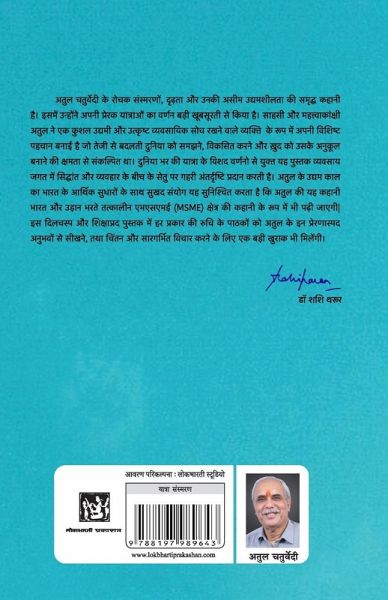 अतुल चतुर्वेदी के रोचक संस्मरणों, दृढ़ता और उनकी असीम उद्यमशीलता की समृद्ध कहानी
है। इसमें उन्होंने अपनी प्रेरक यात्राओं का वर्णन बड़ी खूबसूरती से किया है। साहसी और महत्त्वाकांक्षी
अतुल ने एक कुशल उद्यमी और उत्कृष्ट व्यवसायिक सोच रखने वाले व्यक्ति के रूप में अपनी विशिष्ट
पहचान बनाई है जो तेजी से बदलती दुनिया को समझने, विकसित करने और खुद को उसके अनुकूल
बनाने की क्षमता से संकल्पित था। दुनिया भर की यात्रा के विशद वर्णनो से युक्त यह पुस्तक व्यवसाय
जगत में सिद्धांत और व्यवहार के बीच के सेतु पर गहरी अंतर्दृष्टि प्रदान करती है। अतुल के उद्यम काल
का भारत के आर्थिक सुधारों के साथ सुखद संयोग यह सुनिश्चित करता है कि अतुल की यह कहानी
भारत और उड़ान भरते तत्कालीन एमएसएमई (MSME) क्षेत्र की कहानी के रूप में भी पढ़ी जाएगी|
इस दिलचस्प और शिक्षाप्रद पुस्तक में हर प्रकार की रुचि के पाठकों को अतुल के इन प्रेरणास्पद
अनुभवों से सीखने, तथा चिंतन और सारगर्भित विचार करने के लिए एक बड़ी खुराक भी मिलेंगी।
डॉ शशि थरूर
आवरण परिकल्पना : लोकभारती स्टूडियो
यात्रा संस्मरण
9 788197 989643
www.lokbhartiprakashan.com
लोकभारती प्रकाशन
अतुल चतुर्वेदी